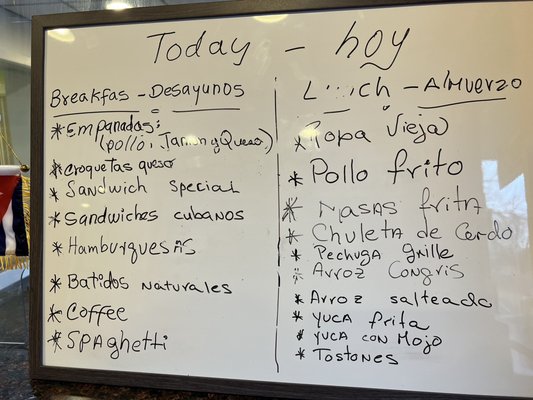 Today - hoy
Breakfas - Desayunos
* Empanadas:
(pollo, Jamon y Queso,)
* Croquetas queso
* Sandwich special
* Sandwiches cubanos
* Hamburguesas
* Batidos naturales
* Coffee
* Spaghetti
L...ch - Almuerzo
* Ropa Vieja
* Pollo frito
* Masas frita
* Chuleta de Cerdo
* Pechuga grille
* Arroz Congris
* Arroz salteado
* Yuca frita
* Yuca con Mojo
* Tostones